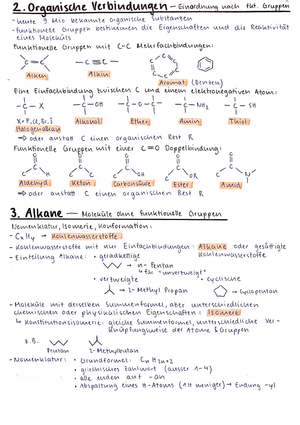 2. Organische Verbindungen – Einordnung nach fkt. Gruppen
- heute 9 Mio bekannte organische Substanzen
- funktionelle Gruppen bestimmen die Eigenschaften und die Reaktivität
eines Moleküls
Funktionelle Gruppen mit C-C Mehrfachbindungen:
C=C C≡C
Alken Alkin Aromat (Benzen)
Eine Einfachbindung zwischen C und einem elektronegativen Atom:
-C-X -C-OH -C-O-C- -C-NH₂ -C-SH
X=F, Cl, Br, I Alkohol Ether Amin Thiol
Halogenalkan
⇒ oder anstatt C einen organischen Rest R
Funktionelle Gruppen mit einer C=O Doppelbindung:
Aldehyd Keton Carbonsäure Ester Amid
⇒ oder anstatt C einen organischen Rest R
3. Alkane — Moleküle ohne funktionelle Gruppen
Nomenklatur, Isomerie, Konformation:
- CxHy → Kohlenwasserstoffe
- Kohlenwasserstoffe mit nur Einfachbindungen: Alkane oder gesättigte
Kohlenwasserstoffe
- Einteilung Alkane: • geradkettige
→ n-Pentan
↳ für "unverzweigt"
• verzweigte • cyclische
→ 2-Methyl Propan → Cyclopentan
- Moleküle mit derselben Summenformel, aber unterschiedlichen
chemischen oder physikalischen Eigenschaften: Isomere
↳ Konstitutionsisomerie: gleiche Summenformel, unterschiedliche Ver-
knüpfungsweise der Atome & Gruppen
z.B.
Pentan 2-Methylbutan
- Nomenklatur: • Grundformel: CnH2n+2
• griechisches Zahlwort (ausser 1-4)
• alle enden auf -an
• Abspaltung eines H-Atoms (1H weniger) → Endung -yl